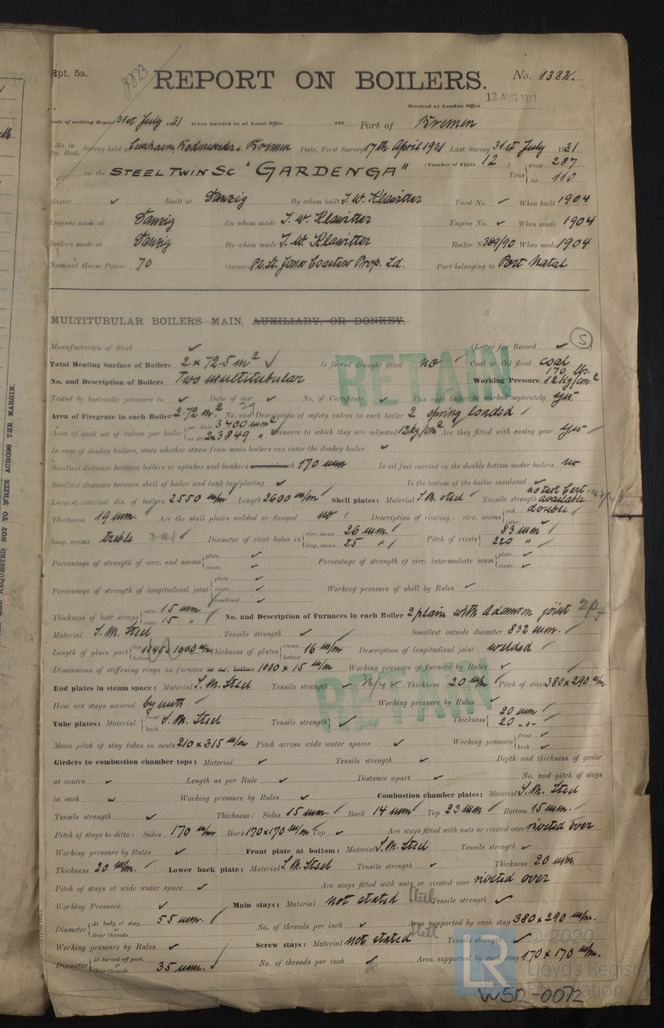 Rpt. 5a.
8823
REPORT ON BOILERS.
No. 1382.
Received at London Office
13 AUG 1931
Date of writing Report 31st July 1931 When handed in at Local Office 193 Port of Bremen
No. in Reg. Book. Survey held Bremen Date, First Survey 17th April 1931 Last Survey 31st July 1931
(Number of Visits 12) Gross 287
on the STEEL TWIN SC "GARDENGA" Tons Net 110
Master ✓ Built at Danzig By whom built J. W. Klawitter Yard No. ✓ When built 1904
Engines made at Danzig By whom made J. W. Klawitter Engine No. ✓ When made 1904
Boilers made at Danzig By whom made J. W. Klawitter Boiler No. 389/90 When made 1904
Nominal Horse Power 70 Owners Pt. St. Johns Coasters Prop. Ld. Port belonging to Port Natal
MULTITUBULAR BOILERS MAIN, AUXILIARY, OR DONKEY.
Manufacturers of Steel ✓ (Letter for Record ✓ (S)
Total Heating Surface of Boilers 2 x 72.5 m² ✓ Is forced draught fitted no Coal or Oil fired coal
No. and Description of Boilers Two multitubular Working Pressure 170 lb. 12 kg/cm²
RETAIN
Tested by hydraulic pressure to ✓ Date of test ✓ No. of Certificate ✓ Can each boiler be worked separately yes
Area of Firegrate in each Boiler 2.72 m² No. and Description of safety valves to each boiler 2 spring loaded
Area of each set of valves per boiler per Rule 3400 mm² as fitted 2x3849 " Pressure to which they are adjusted 12 kg/cm² Are they fitted with easing gear yes
In case of donkey boilers, state whether steam from main boilers can enter the donkey boiler ✓
Smallest distance between boilers or uptakes and bunkers 170 mm Is oil fuel carried in the double bottom under boilers no
Smallest distance between shell of boiler and tank top plating ✓ Is the bottom of the boiler insulated ✓
Largest internal dia. of boilers 2550 m/m Length 2600 m/m Shell plates: Material S. M. steel Tensile strength no test Cert. available
Thickness 19 mm. Are the shell plates welded or flanged no Description of riveting: circ. seams end double inter ✓
long. seams treble Diameter of rivet holes in circ. seams 26 mm. long. seams 25 " Pitch of rivets 83 mm 220 "
Percentage of strength of circ. end seams plate ✓ rivets ✓ Percentage of strength of circ. intermediate seam plate ✓ rivets ✓
Percentage of strength of longitudinal joint plate ✓ rivets ✓ combined ✓ Working pressure of shell by Rules ✓
Thickness of butt straps outer 15 mm inner 15 " No. and Description of Furnaces in each Boiler 2 plain with Adamson joint
Material S. M. Steel Tensile strength ✓ Smallest outside diameter 832 mm.
Length of plain part top 1145 x 1000 m/m bottom Thickness of plates crown bottom 16 m/m Description of longitudinal joint welded
Dimensions of stiffening rings on furnace or c.c. bottom 1000 x 15 m/m Working pressure of furnace by Rules ✓
RETAIN
End plates in steam space: Material S. M. Steel Tensile strength Thickness 20 m/m Pitch of stays 380 x 290 m/m
How are stays secured by nuts Working pressure by Rules ✓
Tube plates: Material front back S. M. Steel Tensile strength ✓ Thickness 20 mm 20
Mean pitch of stay tubes in nests 210 x 315 m/m Pitch across wide water spaces ✓ Working pressure front ✓ back ✓
Girders to combustion chamber tops: Material ✓ Tensile strength ✓ Depth and thickness of girder
at centre ✓ Length as per Rule ✓ Distance apart ✓ No. and pitch of stays
in each ✓ Working pressure by Rules ✓ Combustion chamber plates: Material S. M. Steel
Tensile strength ✓ Thickness: Sides 15 mm Back 14 mm Top 23 mm Bottom 15 mm.
Pitch of stays to ditto: Sides 170 m/m Back 170x170 m/m Top ✓ Are stays fitted with nuts or riveted over riveted over
Working pressure by Rules ✓ Front plate at bottom: Material S. M. Steel Tensile strength ✓
Thickness 20 m/m. Lower back plate: Material S. M. Steel Tensile strength ✓ Thickness 20 m/m
Pitch of stays at wide water space ✓ Are stays fitted with nuts or riveted over riveted over
Working Pressure ✓ Main stays: Material not stated Steel Tensile strength ✓
Diameter At body of stay, or Over threads 55 mm. No. of threads per inch ✓ Area supported by each stay 380 x 290 m/m.
Working pressure by Rules ✓ Screw stays: Material not stated Steel Tensile strength ✓
Diameter At turned off part, or Over threads 35 mm. ✓ No. of threads per inch ✓ Area supported by each stay 170 x 170 m/m.
LR
© 2020
Lloyd's Register
Foundation
W5D-0072
REQUESTED NOT TO WRITE ACROSS THE MARGIN.